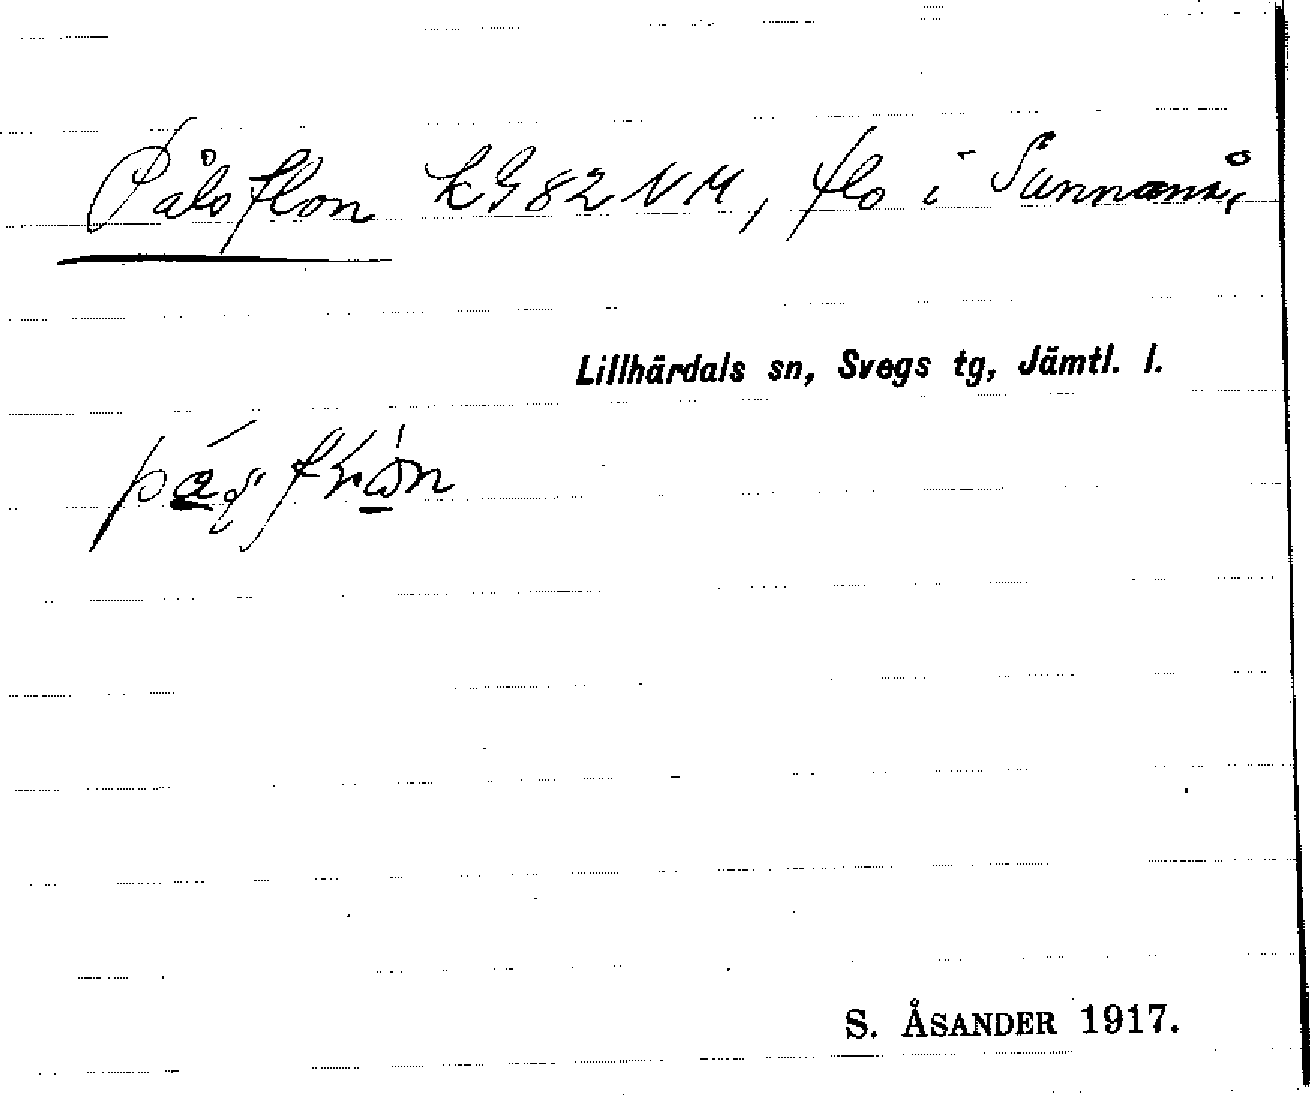 Pålsflon K982NM, flo i Sunnanå,
Lillhärdals sn, Svegs tg, Jämtl. l.
S. ÅSANDER 1917.